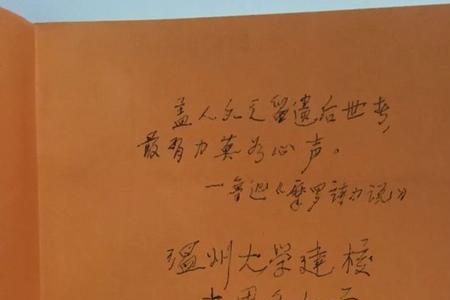 盖人文之留遗后世者,
最有力莫为心声。
—鲁迅《摩罗诗力说》
温州大学建校